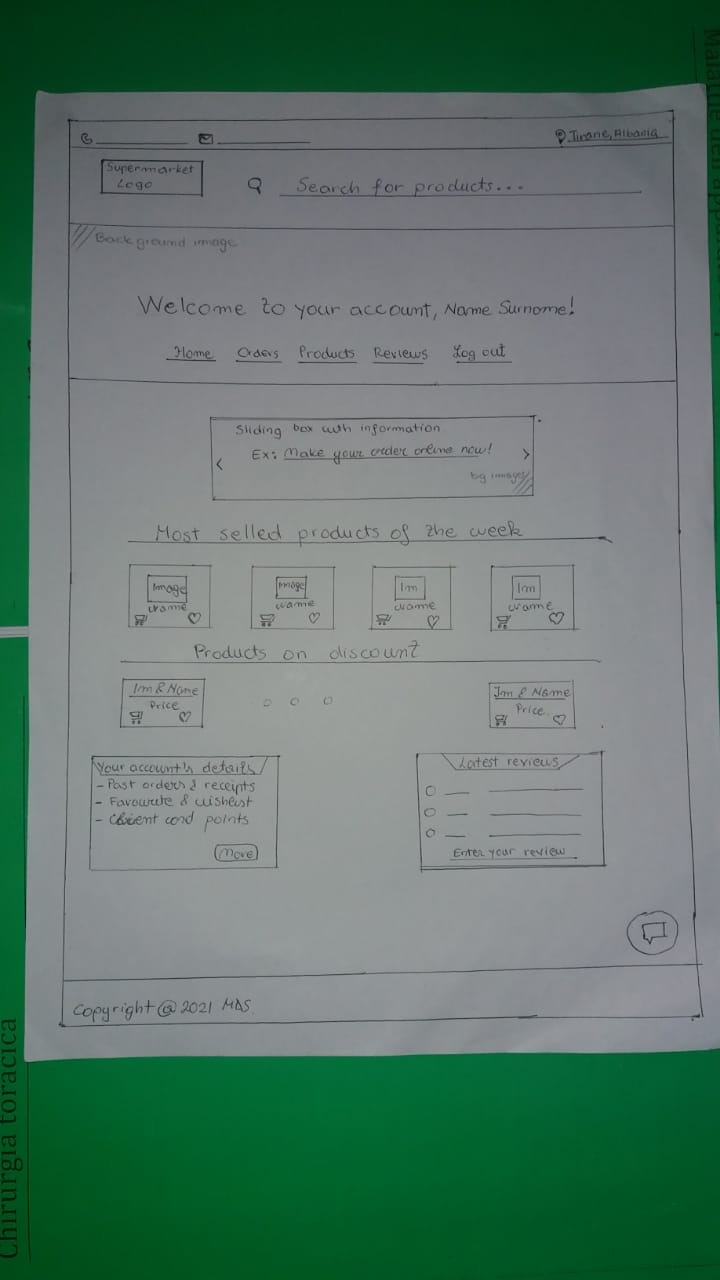 Tirane, Albania
Supermarket
Logo
Search for products...
Background image
Welcome to your account, Name Surname!
Home Orders Products Reviews Log out
Sliding box with information
Ex: Make your order online now!
bg images
Most selled products of the week
Image Image Im Im
Name Name Name Name
Products on discount
Im & Name Im & Name
Price Price
Your account's details
- Past orders & receipts
- Favourite & wishlist
- Client card points
More
Latest reviews
Enter your review
Copyright @ 2021 MAS
Chirurgia toracica